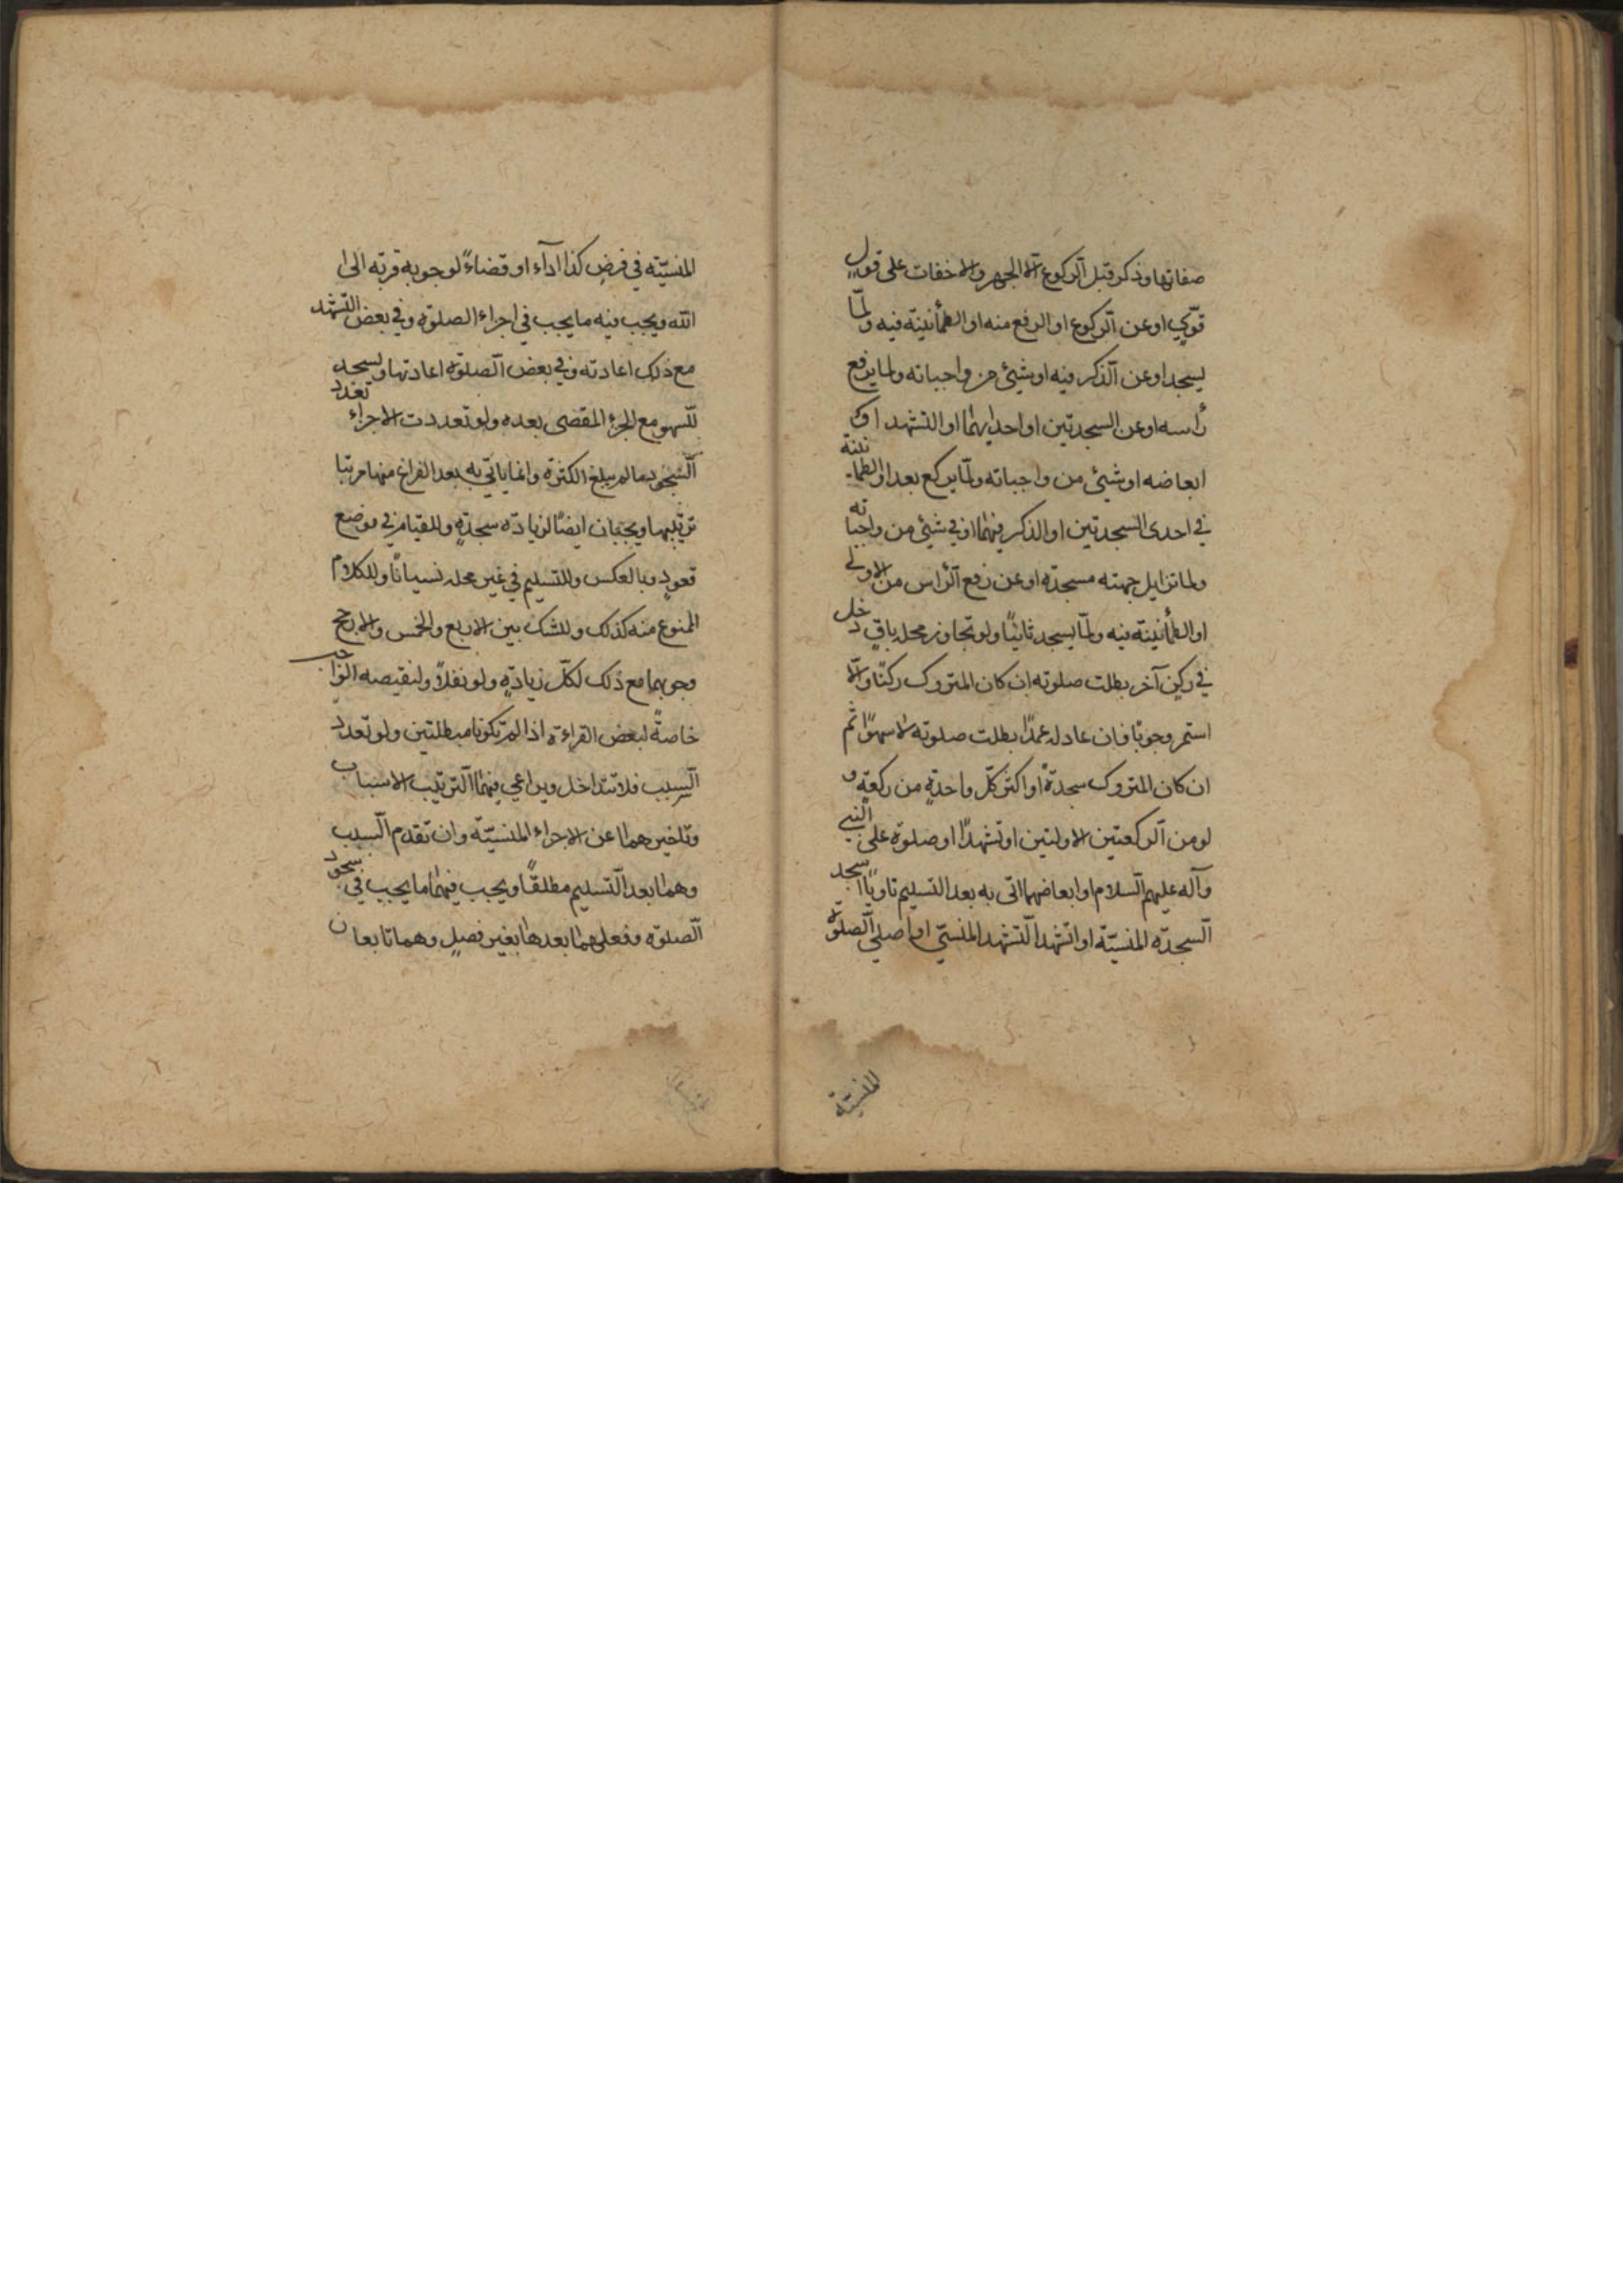 صفاتها وذكر قبل الركوع الا الجهر والاخفات على قول
قوي او عن الركوع او الرفع منه او الطمأنينة فيه ولمّا
يسجد او عن الذكر فيه او شيئ من واجباته ولما يرفع
رأسه او عن السجدتين او احدايهما او التشهد او
ابعاضه او شيئ من واجباته ولمّا يركع بعد او الطمأنينة
في احدى السجدتين او الذكر فيهما او في شيئ من واجباته
ولما تزايل جبهته مسجده او عن رفع الرأس من الاولى
او الطمأنينة فيه ولمّا يسجد ثانيًا ولو تجاوز محله باقٍ دخل
في ركن آخر بطلت صلوته ان كان المتروك ركنًا والّا
استمر وجوبًا فان عاد له عمدًا بطلت صلوته لا سهوًا ثم
ان كان المتروك سجدةً او اكثر كلّ واحدةٍ من ركعةٍ و
لو من الركعتين الاولتين او تشهدًا او صلوة على النبي
وآله عليهم السلام او ابعاضهما اتى به بعد التسليم ناويًا اسجد
السجدة المنسيّة او اتشهد التشهد المنسيّ او اصلي الصلوة
المنسيّة
المنسيّة في فرضٍ كذا ادآء او قضاءً لوجوبه قربة الى
الله ويجب فيه ما يجب في اجزاء الصلوة وفي بعض التشهد
مع ذلك اعادته وفي بعض الصلوة اعادتها ويسجد
للسهو مع الجزء المقضى بعده ولو تعددت الاجزاء تعدد
السجود ما لم يبلغ الكثرة وانما ياتي به بعد الفراغ منها مرتبا
ترتيبها ويجبان ايضًا لزيادة سجدةٍ وللقيام في موضع
قعودٍ وبالعكس وللتسليم في غير محله نسيانًا وللكلام
الممنوع منه كذلك وللشك بين الاربع والخمس والارجح
وجوبهما مع ذلك لكلّ زيادةٍ ولو نفلًا ولنقيصه الواجب
خاصةً لبعض القراءة اذا لم تكونا مبطلتين ولو تعدد
السبب فلا تتداخل ويراعي فيهما الترتيب الاسباب
وتاخيرهما عن الاجزاء المنسيّة وان تقدم السبب
وهما بعد التسليم مطلقًا ويجب فيهما ما يجب في سجود
الصلوة وفعلهما بعدها بغير فصلٍ وهما تابعان